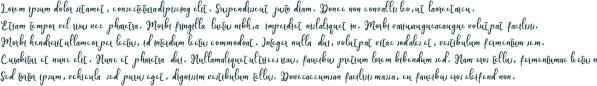 Lorem ipsum dolor sit amet, consectetur adipiscing elit. Suspendisse ut justo diam. Donec non convallis leo, ut laoreet arcu.
Etiam tempor vel risus nec pharetra. Morbi fringilla luctus nibh, a imperdiet mi aliquet in. Morbi varius augue ac augue volutpat facilisis.
Morbi hendrerit ullamcorper lectus, id interdum lectus commodo at. Integer nulla dui, volutpat vitae sodales et, vestibulum fermentum sem.
Curabitur et nunc elit. Nunc et pharetra dui. Nullam aliquet ultrices risus, faucibus pretium lorem bibendum sed. Nam eros tellus, fermentum ac lectus
Sed tortor ipsum, vehicula sed purus eget, dignissim vestibulum tellus. Donec accumsan facilisis massa, eu faucibus eros eleifend non.